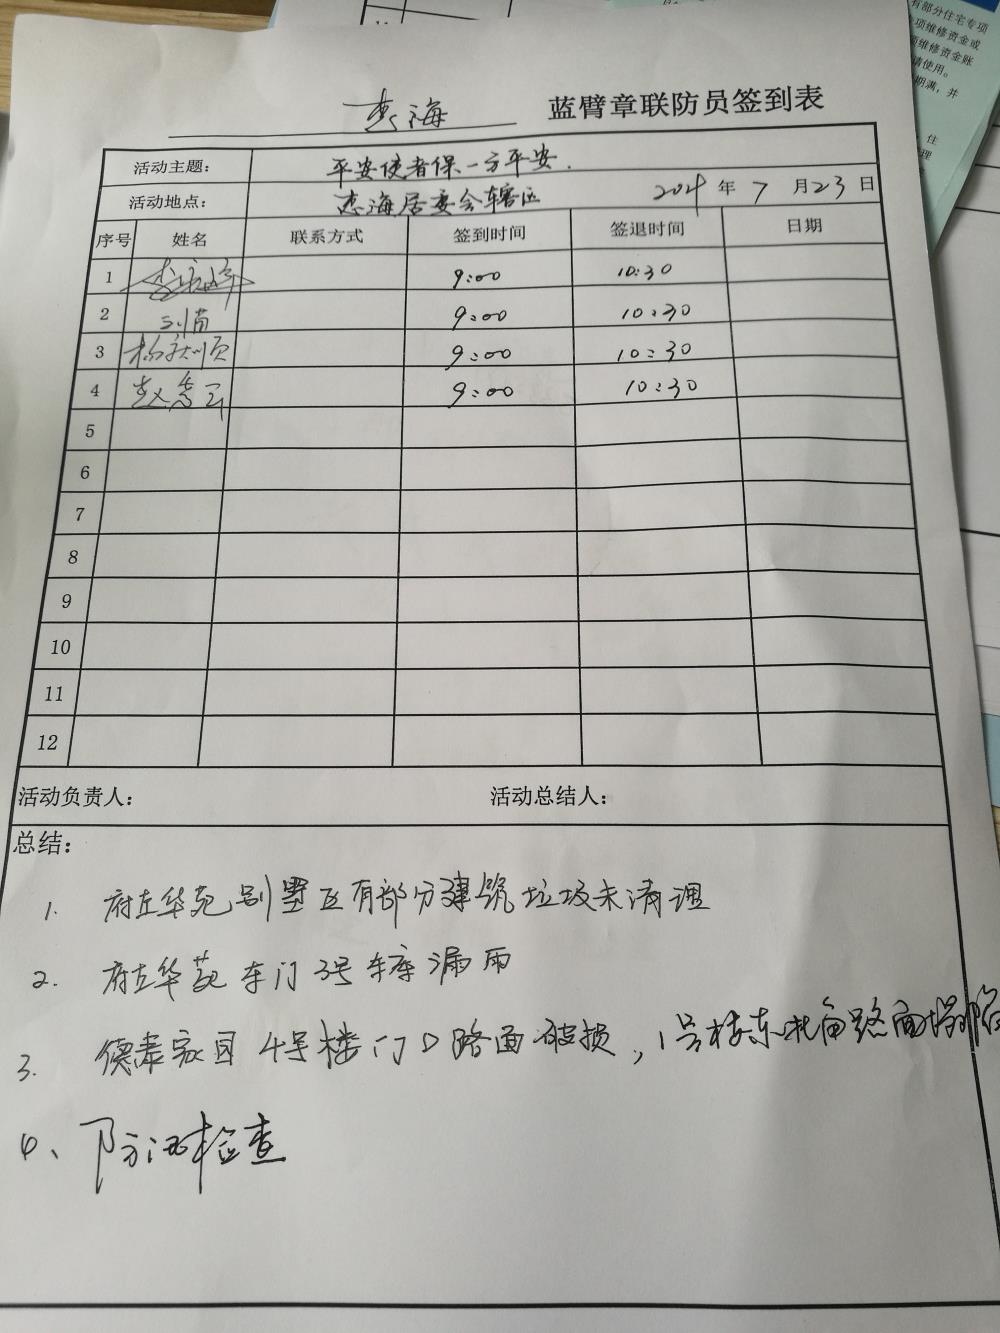 有部分住宅专项
项维修资金或
维修资金账
请使用。
期满，并
住
理
海 蓝臂章联防员签到表
活动主题： 平安使者保一方平安.
活动地点： 海居委会辖区 年 7 月 23 日
序号 姓名 联系方式 签到时间 签退时间 日期
1 9:00 10:30
2 刘苗 9:00 10:30
3 杨 9:00 10:30
4 赵 9:00 10:30
5
6
7
8
9
10
11
12
活动负责人： 活动总结人：
总结：
1. 府左华苑别墅区有部分建筑垃圾未清理
2. 府左华苑东门3号车库漏雨
3. 德泰家园4号楼门口路面破损，1号楼东北角路面塌陷
4、防汛检查